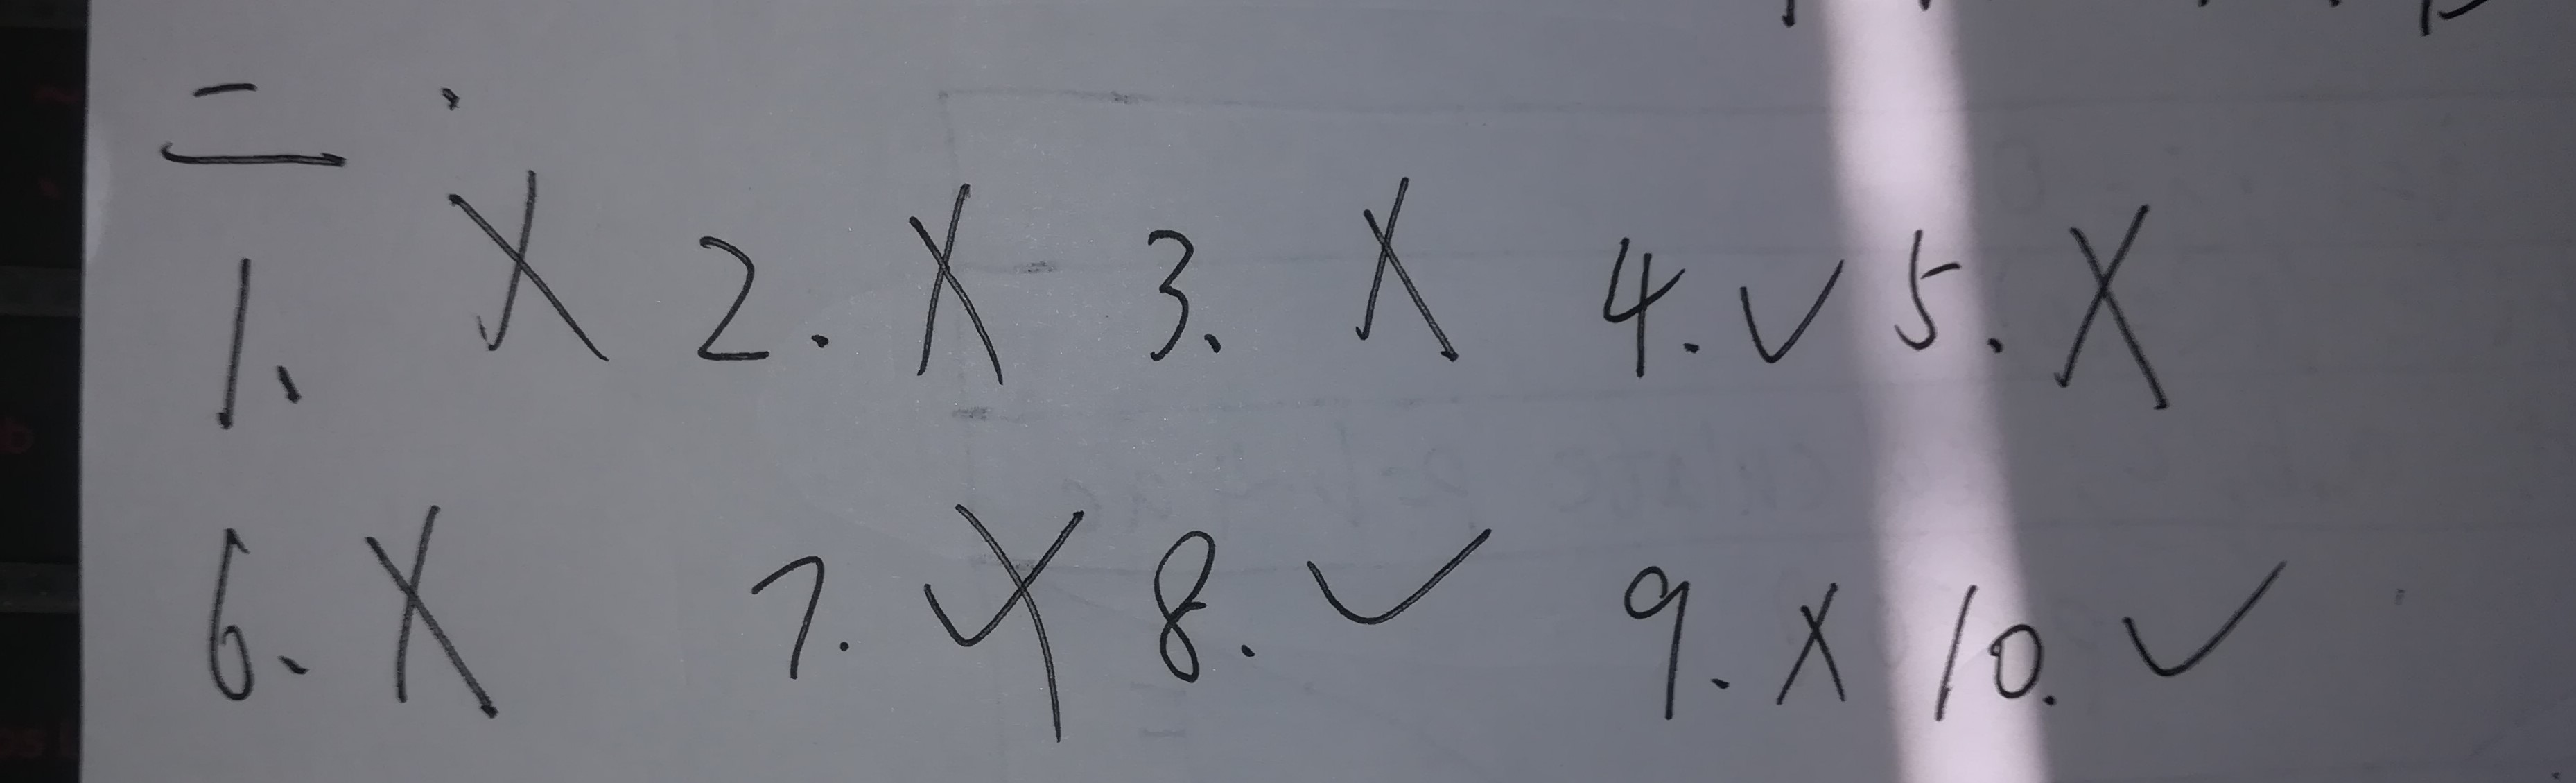 二、
1. × 2. × 3. × 4. ✓ 5. ×
6. × 7. × 8. ✓ 9. × 10. ✓